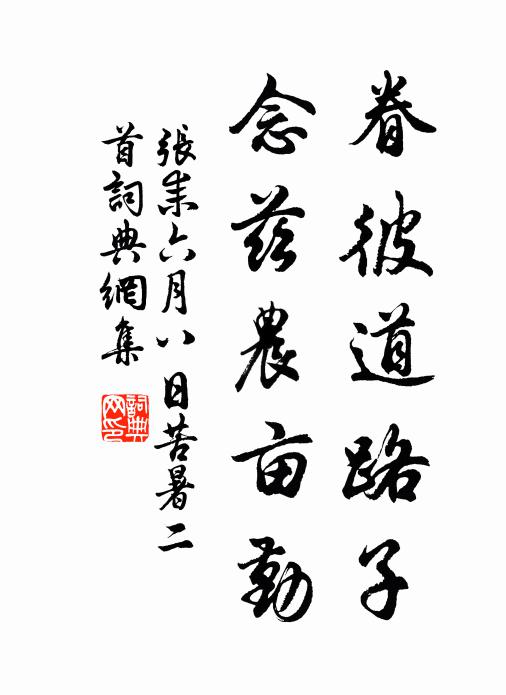 眷彼道路子
念茲農亩勤
張耒六月八日苦暑二
首詞典網集
詞典
网印